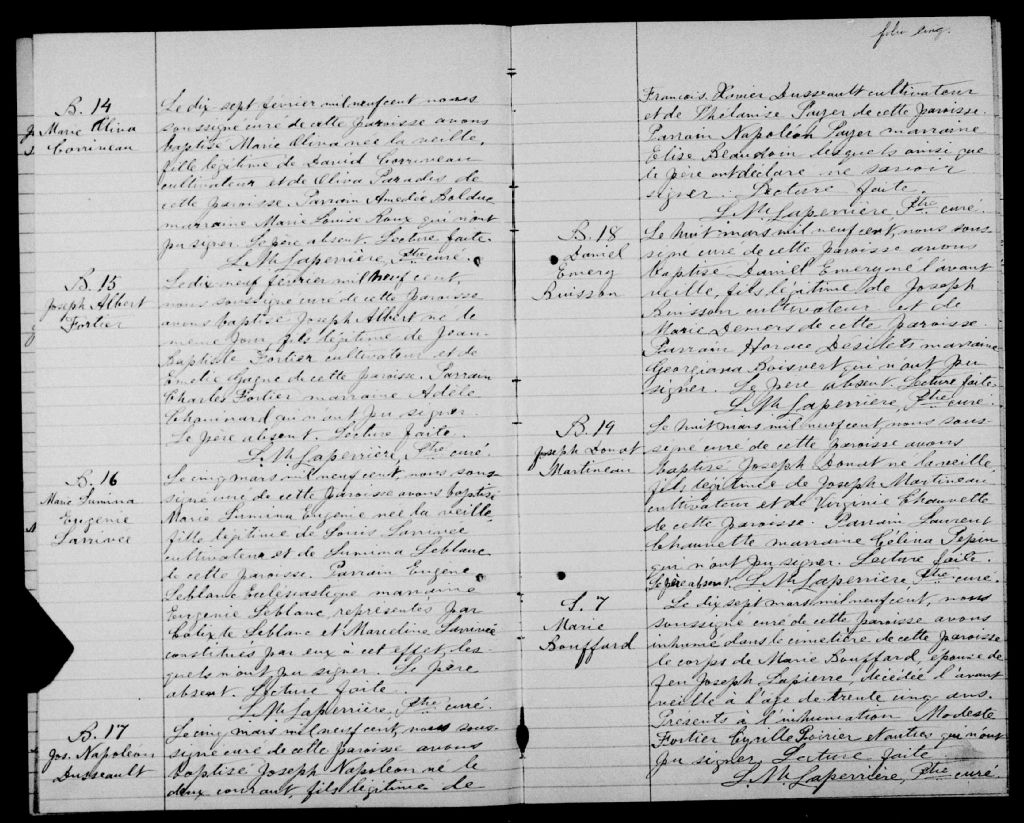 B. 14
Marie Oliva
Corrineau
Le dix sept février mil neuf cent nous
soussigné curé de cette paroisse avons
baptisé Marie Oliva née la veille,
fille légitime de David Corrineau
cultivateur et de Oliva Paradis de
cette paroisse. Parrain Amedée Bolduc
marraine Marie Louise Roux qui n'ont
pu signer. Le père absent. Lecture faite.
L. M. Laperrière, Ptre curé.
B. 15
Joseph Albert
Fortier
Le dix neuf février mil neuf cent,
nous soussigné curé de cette paroisse
avons baptisé Joseph Albert né le
même jour, fils légitime de Jean-
Baptiste Fortier cultivateur et de
Amelie Gagné de cette paroisse. Parrain
Charles Fortier marraine Adèle
Chouinard qui n'ont pu signer.
Le père absent. Lecture faite.
L. M. Laperrière, Ptre curé.
B. 16
Marie Lumina
Eugenie
Larrivée
Le cinq mars mil neuf cent, nous sous-
signé curé de cette paroisse avons baptisé
Marie Lumina Eugenie née la veille
fille légitime de Louis Larrivée
cultivateur et de Lumina Leblanc
de cette paroisse. Parrain Eugene
Leblanc Ecclésiastique marraine
Eugenie Leblanc, representés par
Leblanc et Larrivée
constitués par eux à cet effet, les-
quels n'ont pu signer. Le père
absent. Lecture faite.
L. M. Laperrière, Ptre curé.
B. 17
Jos. Napoléon
Dusseault
Le cinq mars mil neuf cent, nous sous-
signé curé de cette paroisse avons
baptisé Joseph Napoléon né le
deux courant, fils légitime de
folio cinq.
Francois Xavier Dusseault cultivateur
et de Phelanise Payer de cette paroisse.
Parrain Napoléon Payer marraine
Elise Beaudoin lesquels ainsi que
le père ont declaré ne savoir
signer. Lecture faite.
L. M. Laperrière, Ptre curé.
B. 18
Daniel
Emery
Buisson
Le huit mars mil neuf cent, nous sous-
signé curé de cette paroisse avons
baptisé Daniel Emery né l'avant
veille, fils légitime de Joseph
Buisson cultivateur et de
Marie Demers de cette paroisse.
Parrain Horace Desilets marraine
Georgiana Boisvert qui n'ont pu
signer. Le père absent. Lecture faite.
L. M. Laperrière, Ptre curé.
B. 19
Joseph Donat
Martineau
Le huit mars mil neuf cent, nous sous-
signé curé de cette paroisse avons
baptisé Joseph Donat né la veille,
fils légitime de Joseph Martineau
cultivateur et de Virginie Chaurette
de cette paroisse. Parrain Laurent
Chaurette marraine Célina Pepin
qui n'ont pu signer. Lecture faite.
Le père absent. L. M. Laperrière, Ptre curé.
S. 7
Marie
Bouffard
Le dix sept mars mil neuf cent, nous
soussigné curé de cette paroisse avons
inhumé dans le cimetière de cette paroisse
le corps de Marie Bouffard, épouse de
feu Joseph Lapierre, décédée l'avant
veille à l'âge de trente cinq ans.
Presents à l'inhumation Modeste
Fortier Cyrille Poirier et autres qui n'ont
pu signer. Lecture faite.
L. M. Laperrière, Ptre curé.